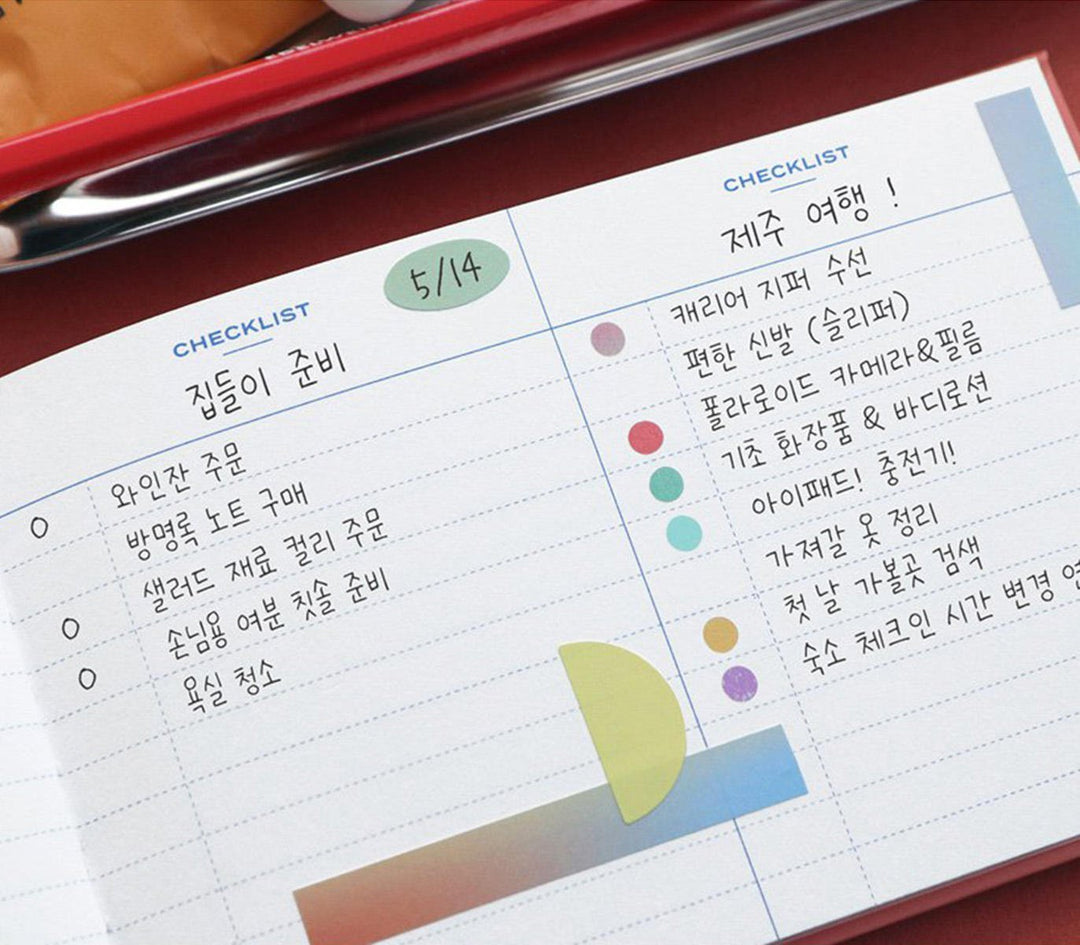 5/14
CHECKLIST
집들이 준비
O 와인잔 주문
방명록 노트 구매
샐러드 재료 컬리 주문
O 손님용 여분 칫솔 준비
O 욕실 청소
CHECKLIST
제주 여행 !
캐리어 지퍼 수선
편한 신발 (슬리퍼)
폴라로이드 카메라&필름
기초 화장품 & 바디로션
아이패드! 충전기!
가져갈 옷 정리
첫 날 가볼곳 검색
숙소 체크인 시간 변경